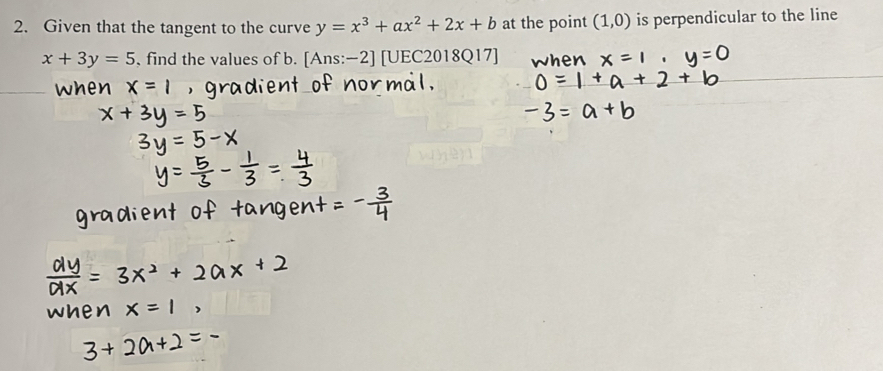 2. Given that the tangent to the curve y = x³ + ax² + 2x + b at the point (1,0) is perpendicular to the line
x + 3y = 5, find the values of b. [Ans:−2] [UEC2018Q17]
when x = 1 , y = 0
0 = 1 + a + 2 + b
-3 = a + b
when x = 1 , gradient of normal.
x + 3y = 5
3y = 5 - x
y = 5/3 - 1/3 = 4/3
gradient of tangent = - 3/4
dy/dx = 3x² + 2ax + 2
when x = 1 ,
3 + 2a + 2 = -